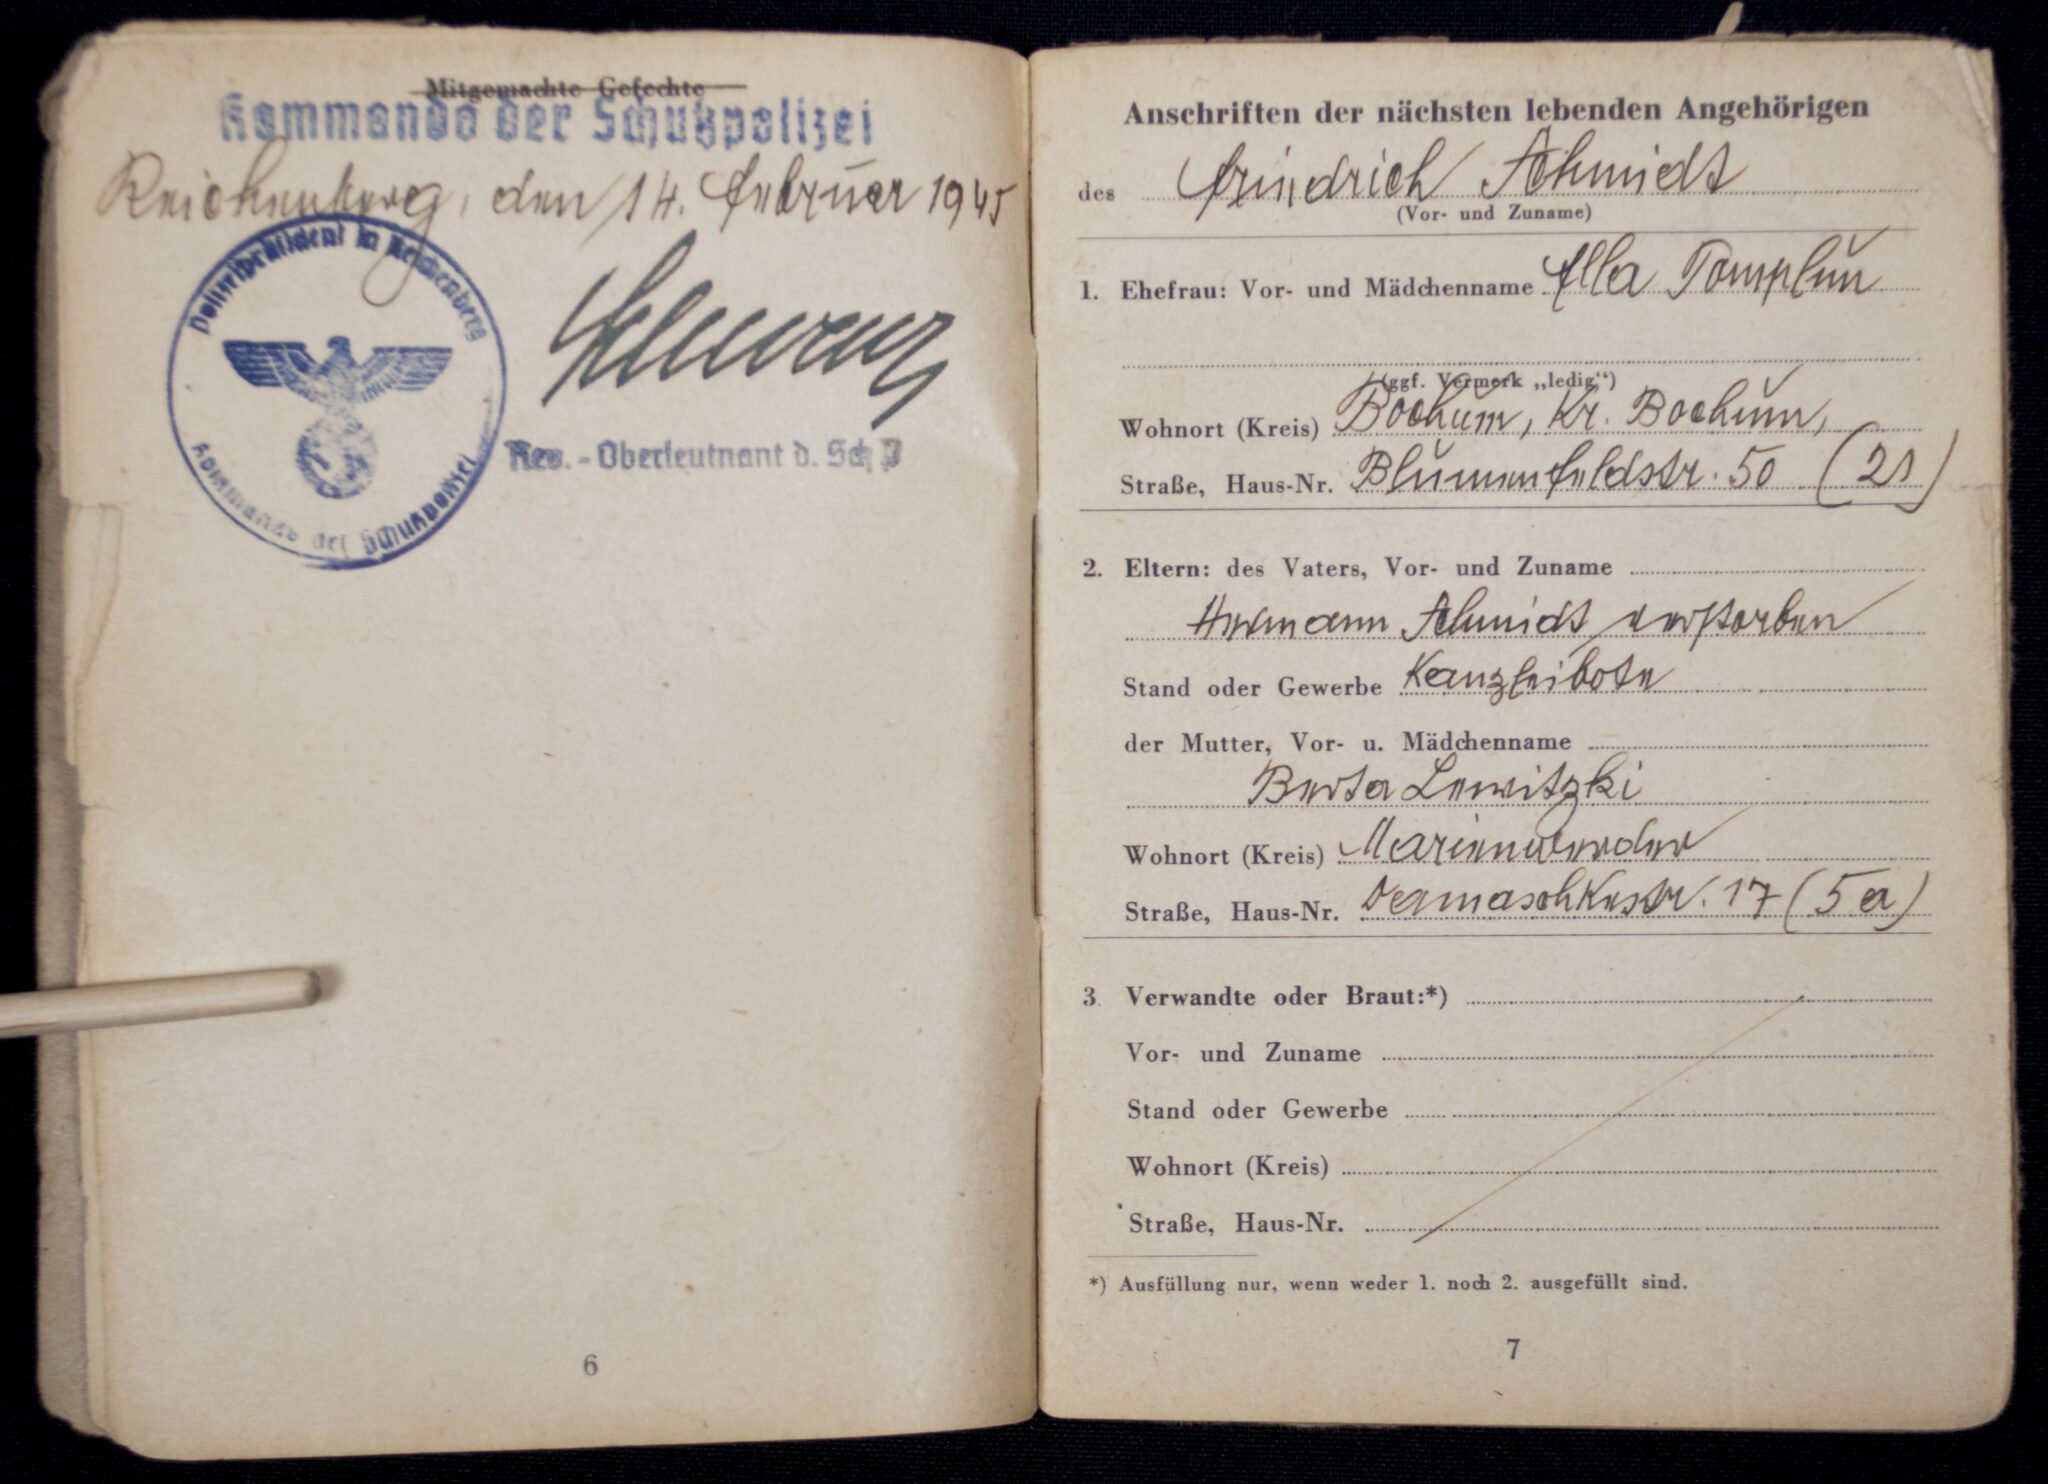 Mitgemachte Gefechte
Kommando der Schutzpolizei
Reichenberg, den 14. Februar 1945
Polizeipräsident in Reichenberg
Kommando der Schutzpolizei
Res.-Oberleutnant d. Sch P
6
Anschriften der nächsten lebenden Angehörigen
des Friedrich Schmidt
(Vor- und Zuname)
1. Ehefrau: Vor- und Mädchenname Ella Pomplun
(ggf. Vermerk „ledig“)
Wohnort (Kreis) Bochum, Kr. Bochum,
Straße, Haus-Nr. Blumenfeldstr. 50 (21)
2. Eltern: des Vaters, Vor- und Zuname
Hermann Schmidt verstorben
Stand oder Gewerbe Kanzleibote
der Mutter, Vor- u. Mädchenname
Berta Lewitzki
Wohnort (Kreis) Marienwerder
Straße, Haus-Nr. Damaschkestr. 17 (5a)
3. Verwandte oder Braut:*)
Vor- und Zuname
Stand oder Gewerbe
Wohnort (Kreis)
Straße, Haus-Nr.
*) Ausfüllung nur, wenn weder 1. noch 2. ausgefüllt sind.
7